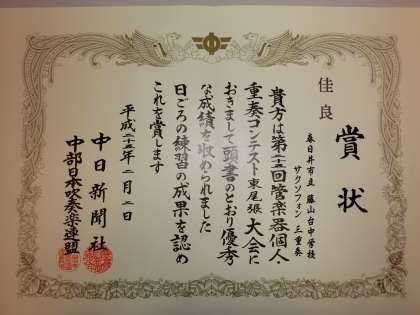 賞状
佳良
春日井市立 藤山台中学校
サクソフォン 三重奏
貴方は第二十二回管楽器個人
重奏コンテスト東尾張大会に
おきまして頭書のとおり優秀
な成績を収められました
日ごろの練習の成果を認め
これを賞します
平成二十三年二月二日
中日新聞社
中部日本吹奏楽連盟